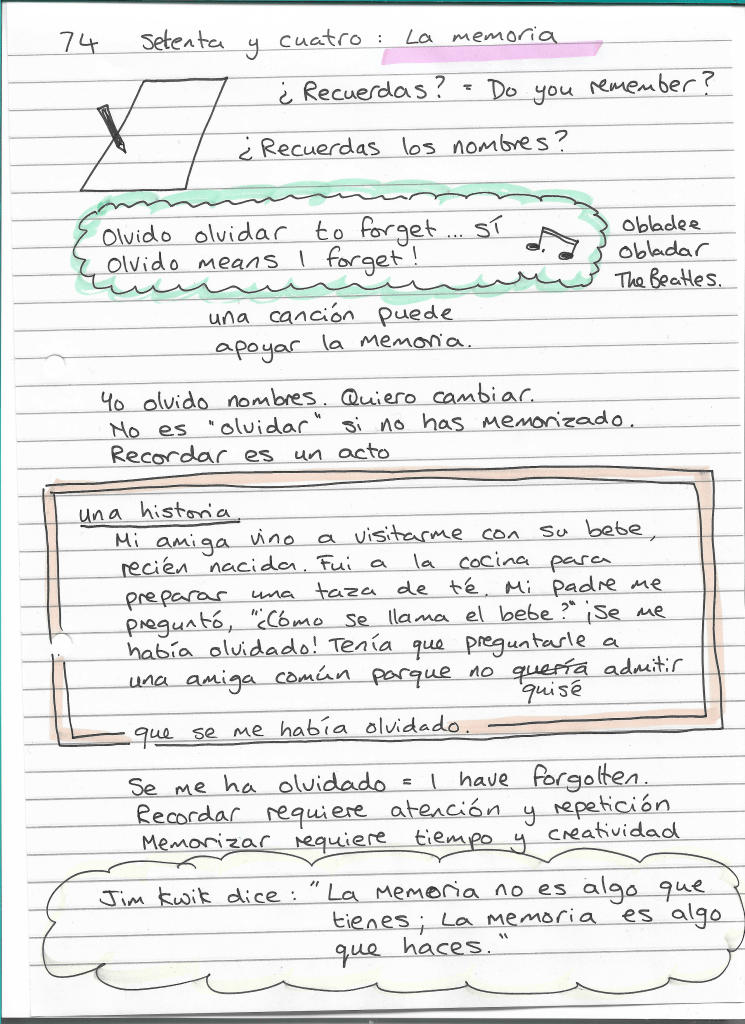 74 Setenta y cuatro : La memoria
¿Recuerdas? = Do you remember?
¿Recuerdas los nombres?
Olvido olvidar to forget... sí
Olvido means I forget!
Obladee
Obladar
The Beatles.
una canción puede
apoyar la memoria.
Yo olvido nombres. Quiero cambiar.
No es "olvidar" si no has memorizado.
Recordar es un acto
una historia
Mi amiga vino a visitarme con su bebe,
recién nacida. Fui a la cocina para
preparar una taza de té. Mi padre me
preguntó, "¿Cómo se llama el bebe?" ¡Se me
había olvidado! Tenía que preguntarle a
una amiga común parque no quería admitir
quisé
que se me había olvidado.
Se me ha olvidado = I have forgotten.
Recordar requiere atención y repetición
Memorizar requiere tiempo y creatividad
Jim Kwik dice : "La memoria no es algo que
tienes; La memoria es algo
que haces."